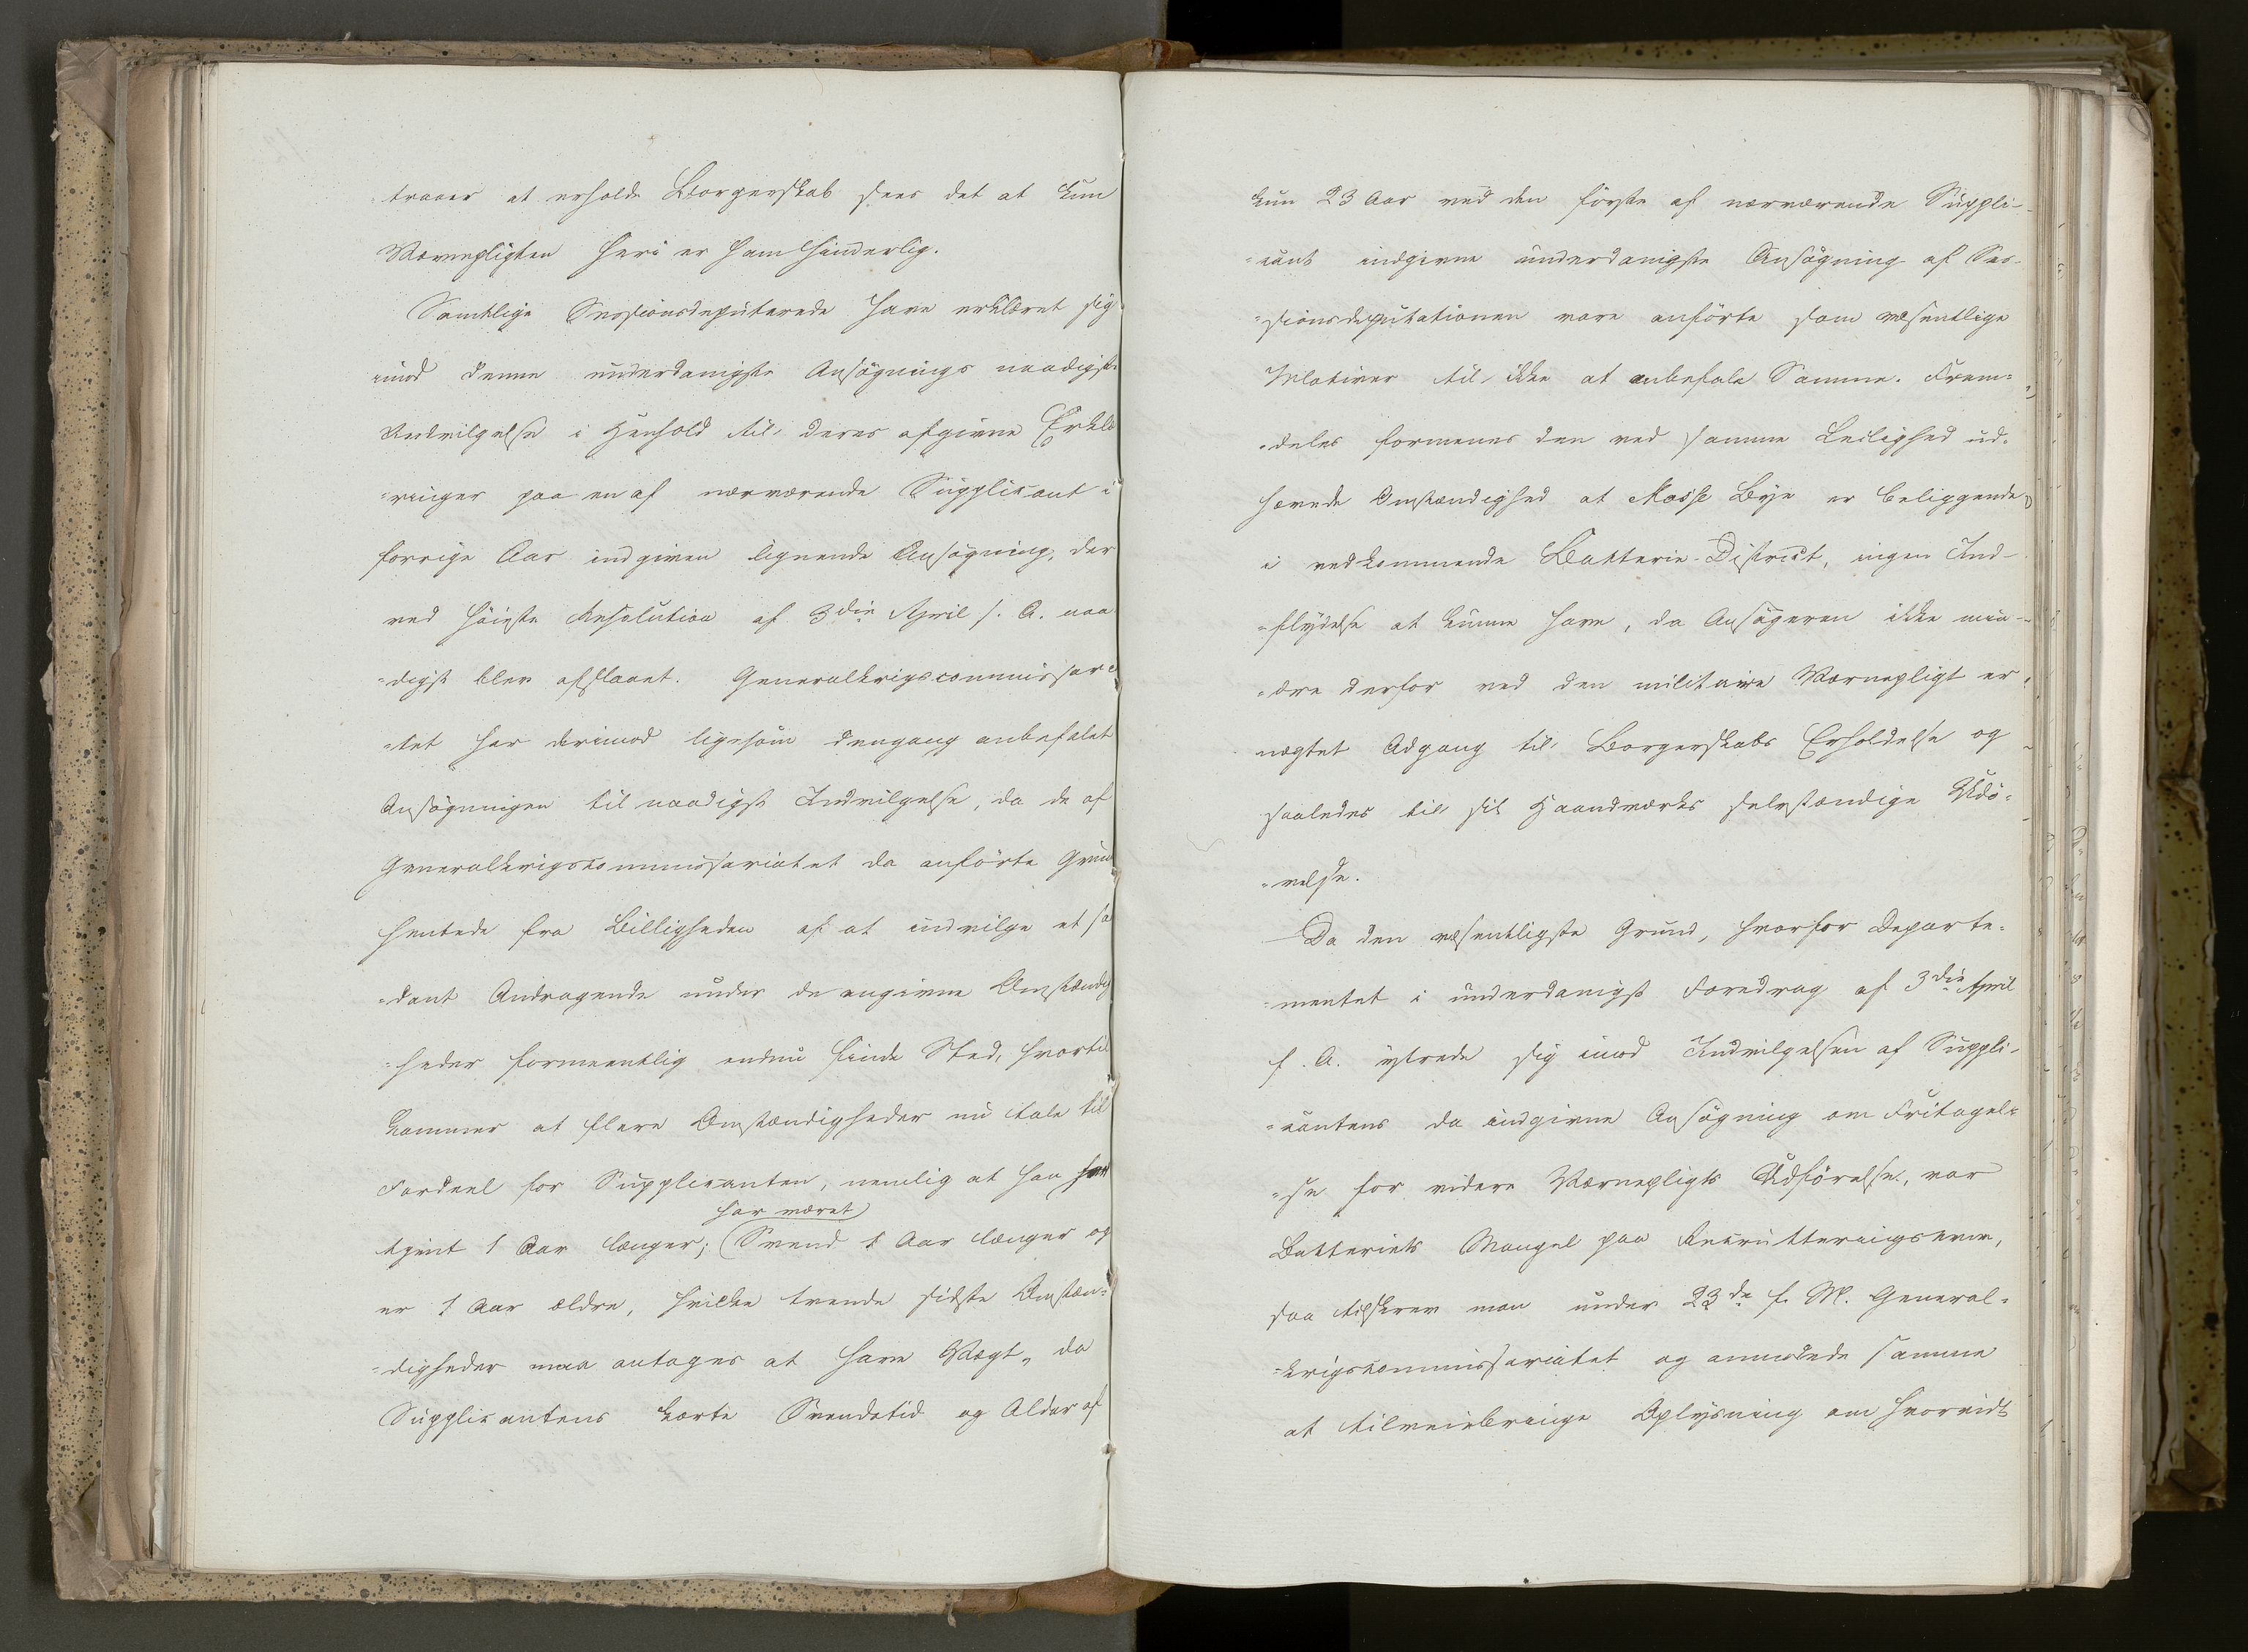 traaer at erholde Borgerskab sees det at kun
Værnepligten heri er ham hinderlig.
Samtlige Sessionsdeputerede have erklæret sig
imod denne underdanigste Ansøgnings naadigste
Indvilgelse i Henhold til deres afgivne Erklæ
=ringer paa en af nærværende Supplikant i
forrige Aar indgiven lignende Ansøgning, der
ved høieste Resolution af 3die April f. A. naa
=digst blev afslaaet. Generalkrigscommissari
=tet har derimod ligesom dengang anbefalet
Ansøgningen til naadigst Indvilgelse, da de af
Generalkrigskommissariatet da anførte Grun
hentede fra Billigheden af at indvilge et sa
=dant Andragende under de angivne Omstændig
=heder formeentlig endnu finde Sted, hvortil
kommer at flere Omstændigheder nu tale til
Fordeel for Supplikanten, nemlig at han har
har været
tjent 1 Aar længer; Svend 1 Aar længer og
er 1 Aar ældre, hvilke tvende sidste Omstæn=
=digheder maa antages at have Vægt, da
Supplikantens korte Svendetid og Alder af
kun 23 Aar ved den første af nærværende Suppli-
=cant indgivne underdanigste Ansøgning af Ses-
=sionsdeputationen vare anførte som væsentlige
Motiver til ikke at anbefale Samme. Frem=
=deles formenes den ved samme Leilighed ud=
hævede Omstændighed at Mosse Bye er beliggende
i vedkommende Batterie-District, ingen Ind-
=flydelse at kunne have, da Ansøgeren ikke min-
=dre derfor ved den militaire Værnepligt er
nægtet Adgang til Borgerskabs Erholdelse og
saaledes til sit Haandværks selvstændige Udø=
=velse.
Da den væsentligste Grund, hvorfor Departe=
=mentet i underdanigst Foredrag af 3die April
f. A. ytrede sig imod Indvilgelsen af Suppli-
=cantens da indgivne Ansøgning om Fritagel=
=se for videre Værnepligts Udførelse, var
Batteriets Mangel paa Rekrutteringsevne,
saa tilskrev man under 23de f. M. General=
=krigskommissariatet og anmodede samme
at tilveiebringe Oplysning om hvorvidt